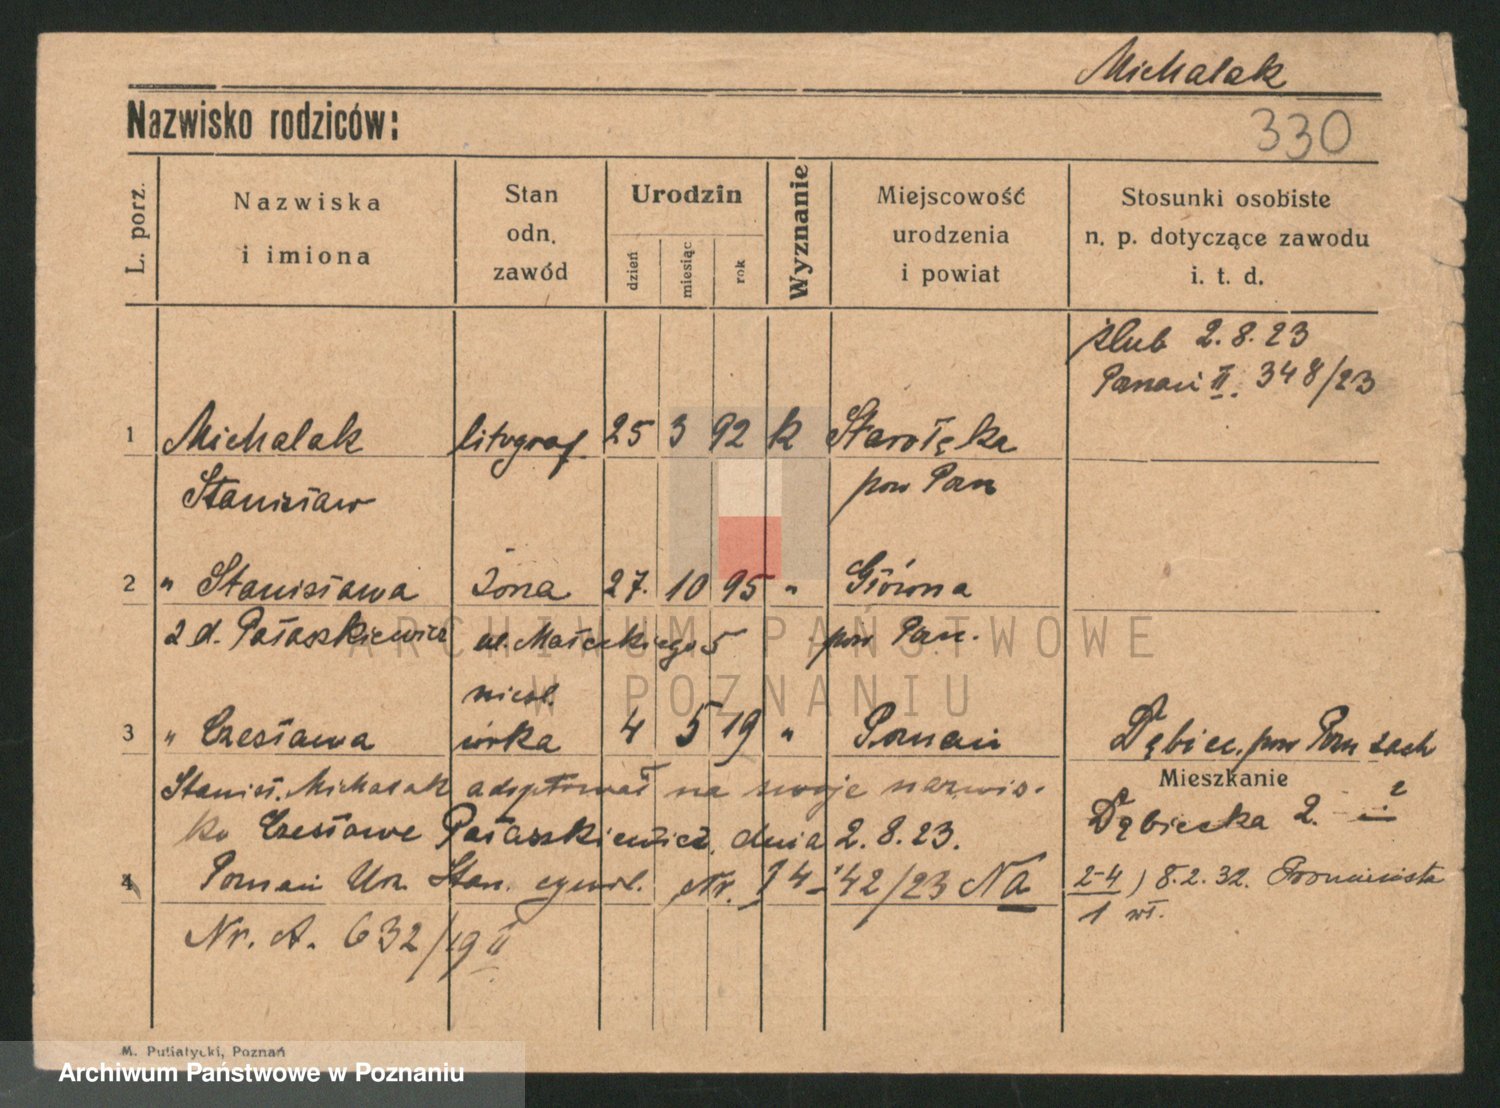 Michalak
Nazwisko rodziców:
330
L. porz.
Nazwiska
i imiona
Stan
odn.
zawód
Urodzin
dzień
miesiąc
rok
Wyznanie
Miejscowość
urodzenia
i powiat
Stosunki osobiste
n. p. dotyczące zawodu
i. t. d.
ślub 2.8.23
Poznań II. 348/23
1 Michalak litograf 25 3 92 k Starołęka
Stanisław pow Pozn
2 " Stanisława żona 27. 10 95 " Główna
z d. Pałaszkiewicz ul. Małeckiego 5 pow Pozn.
nieśl.
3 " Czesława córka 4 5 19 " Poznań Dębiec, pow Pozn zach
Stanisł. Michalak adoptował na swoje nazwis-
Mieszkanie
ko Czesławę Pałaszkiewicz, dnia 2.8.23. Dębiecka 2.
4 Poznań Urz. Stan. cywil. Nr. 42/23 Na
2-4 ) 8.2.32.
1 wł.
Nr. A. 632/19 II
ARCHIWUM PAŃSTWOWE
W POZNANIU
M. Putiatycki, Poznań
Archiwum Państwowe w Poznaniu